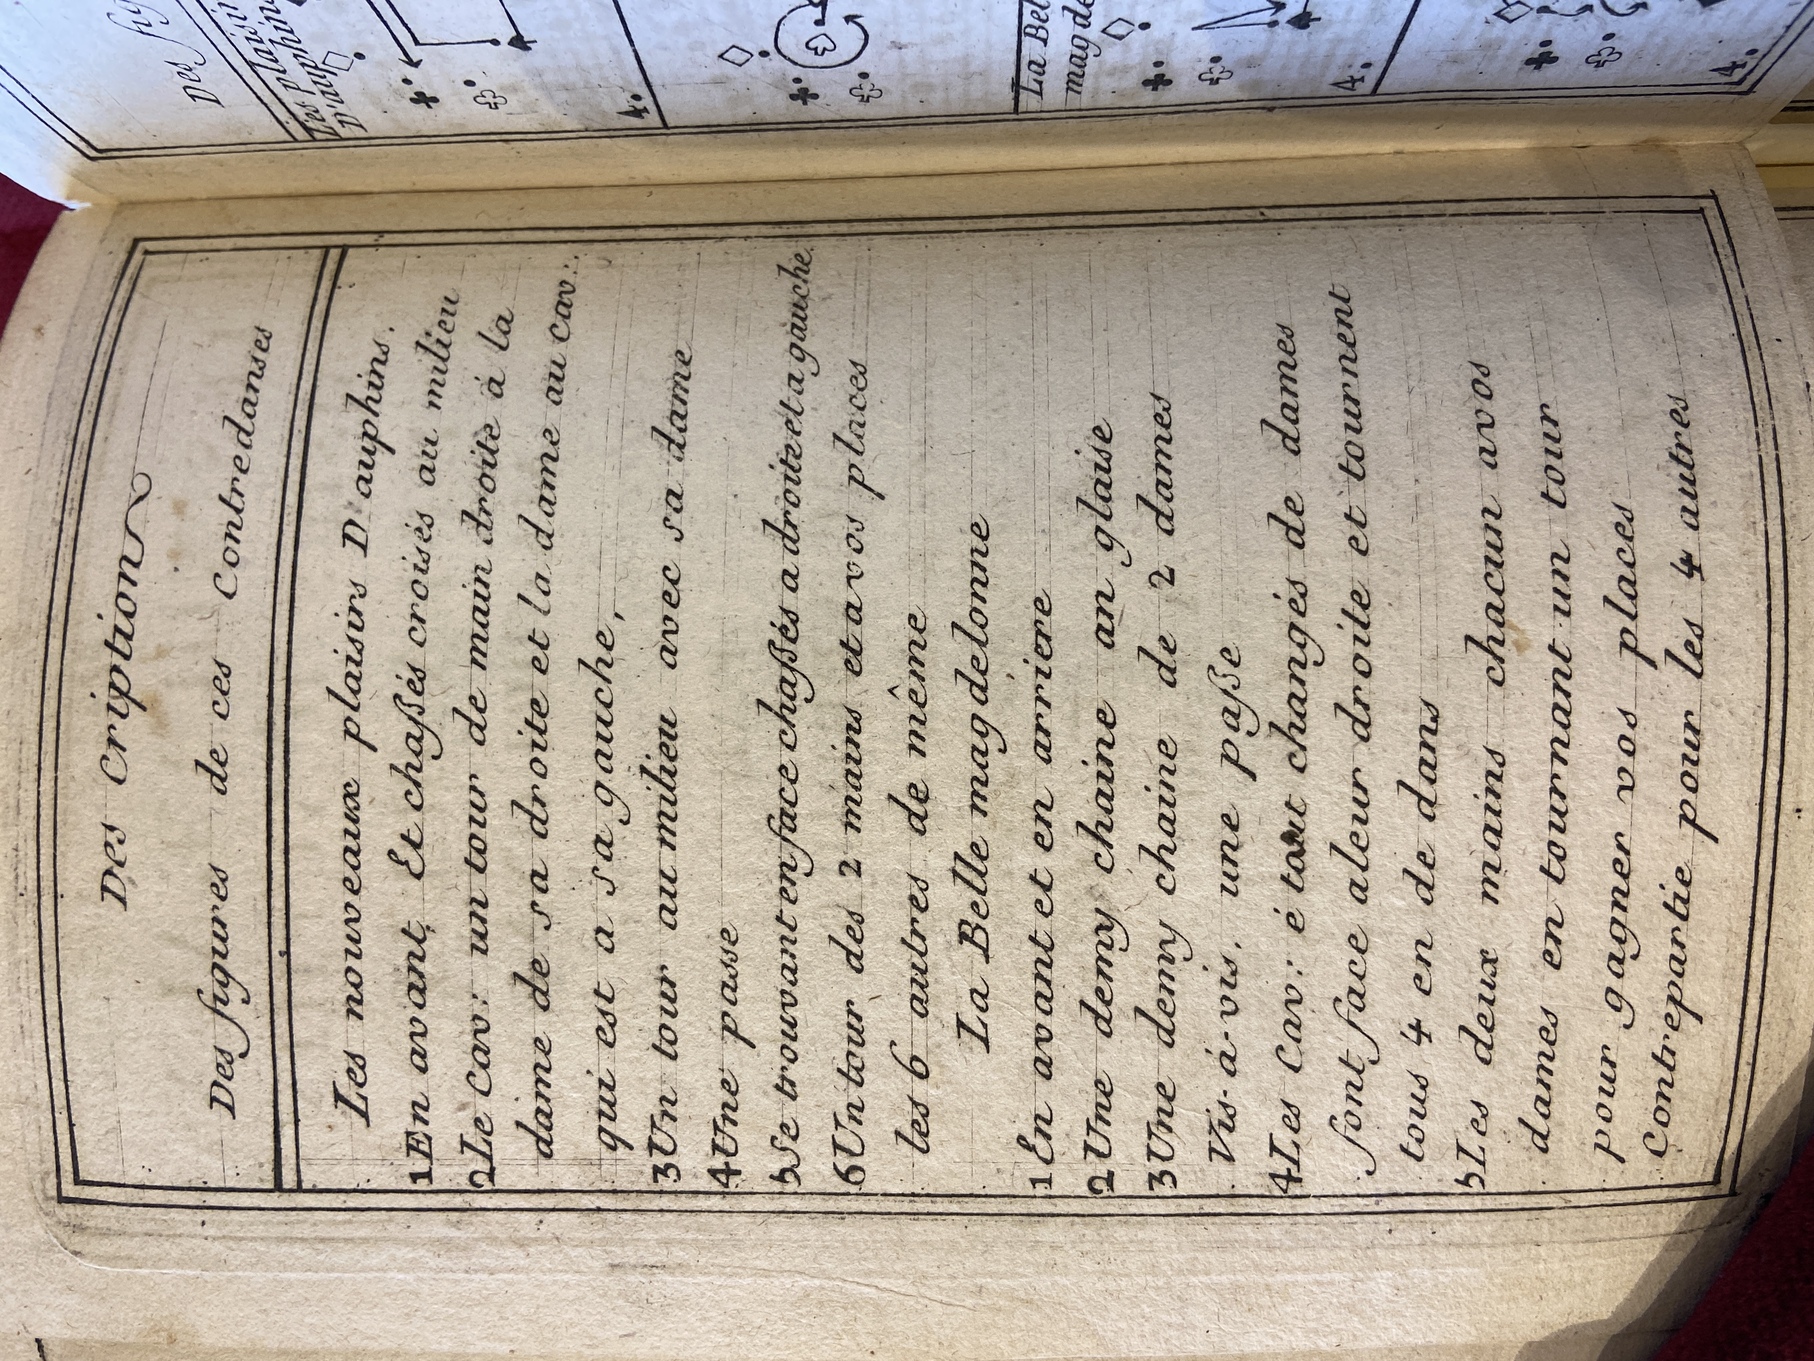 Des Cription
Des figures de ces Contredanses
Les nouveaux plaisirs D'auphins.
1 En avant, Et chaßés croisés au milieu
2 Le Cav: un tour de main droite à la
dame de sa droite et la dame au cav:
qui est a sa gauche,
3 Un tour au milieu avec sa dame
4 Une passe
5 Se trouvant en face chaßés a droite et a gauche
6 Un tour des 2 mains et a vos places
les 6 autres de même
La Belle magdelonne
1 En avant et en arriere
2 Une demy chaine an glaise
3 Une demy chaine de 2 dames
Vis-á-vis, une paße
4 Les Cav: é tant changés de dames
font face aleur droite et tournent
tous 4 en de dans
5 Les deux mains chacun a vos
dames en tournant un tour
pour gagner vos places
Contrepartie pour les 4 autres
Les plaisi
D'auphin
4.
La Bel
magde
4.
4.